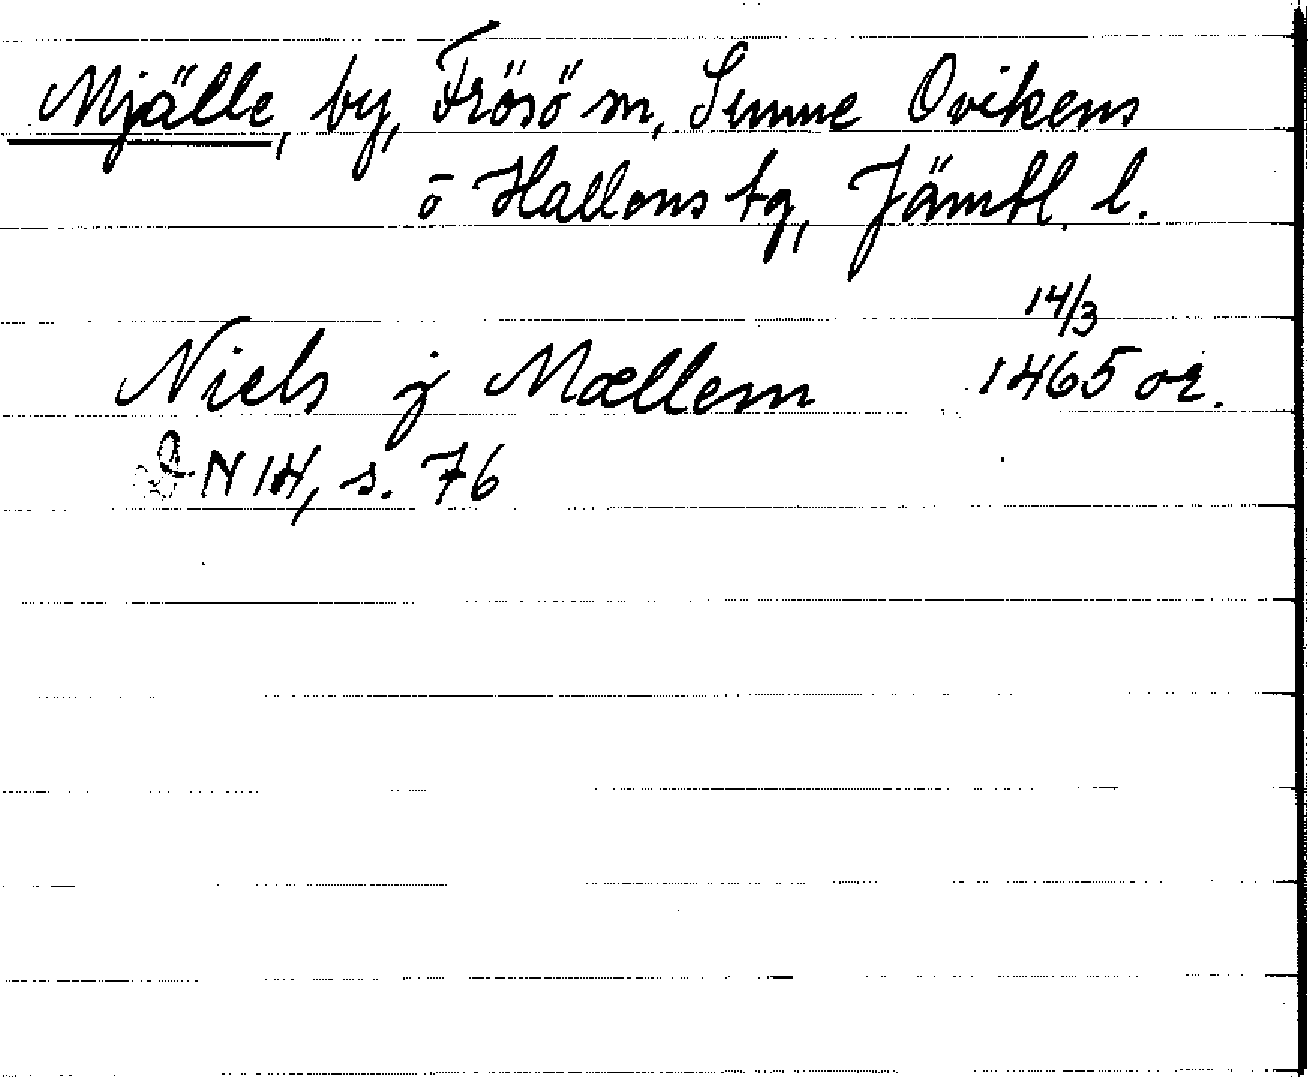 Mjälle, by, Frösö sn, Sunne Ovikens
o Hallens tg, Jämtl. l.
14/3
Niels j Mællem 1465 or.
DN 14, s. 76